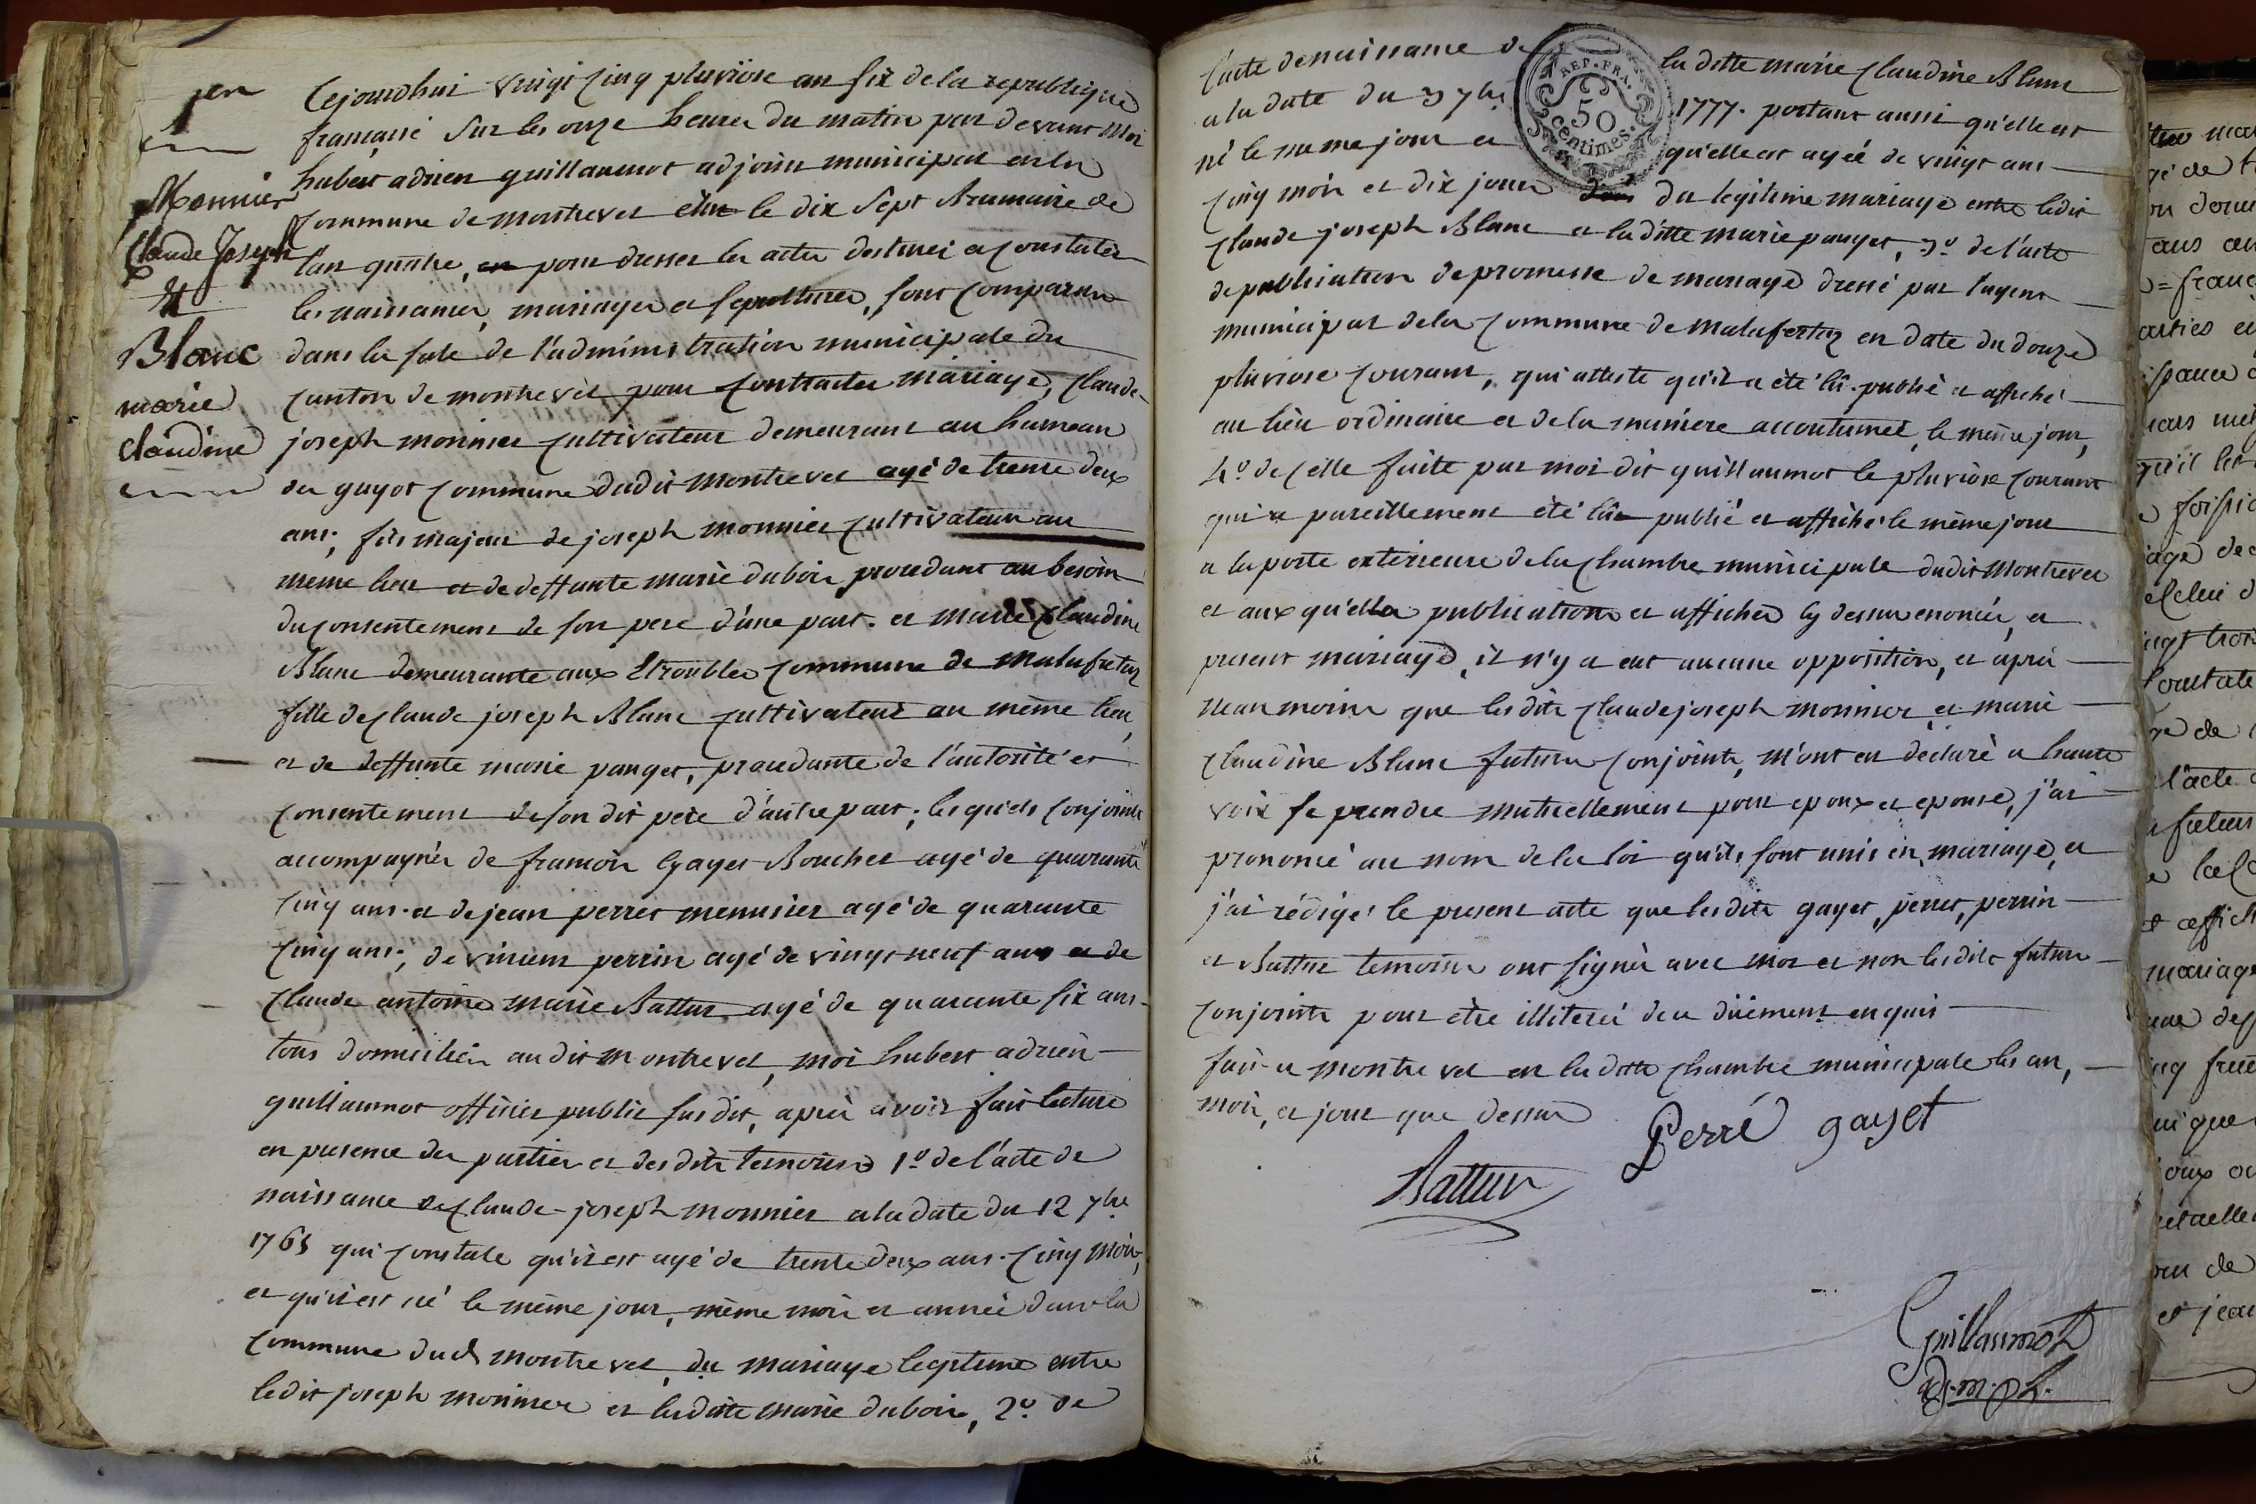 pen
Monnier
Claude Joseph
Et
Blanc
marie
claudine
Cejourdhui vingt cinq pluviôse an six de la republique
française sur les onze heures du matin par devant Moi
hubert adrien guillaumot adjoint municipal en la
Commune de montrevel élue le dix sept brumaire de
l'an quatre, pour dresser les actes destinés a constater
les naissances, mariages et sepultures, sont comparus
dans la sale de l'administration municipale du
canton de montrevel pour contracter mariage, claude-
joseph monnier cultivateur demeurant au hameau
du guyot commune dudit Montrevel agé de trente deux
ans, fils majeur de joseph monnier cultivateur au
meme lieu et de deffunte marie dubois procedant au besoin
du consentement de son pere d'une part. et marie claudine
Blanc demeurante aux Etroubles commune de Malafretaz
fille de claude joseph Blanc cultivateur au même lieu,
et de deffunte marie panget, procedante de l'autorité et
consentement de son dit pere d'autre part; lesquels conjoints
accompagnés de françois Gayet Boucher agé de quarante
cinq ans. et de jean perret menusier agé de quarante
cinq ans; de vincent perrin agé de vingt neuf ans et de
claude antoine marie Battur agé de quarante six ans
tous domiciliés audit montrevel, moi hubert adrien
guillaumot officier public susdit, après avoir fait lecture
en presence des parties et desdits temoins 1º de l'acte de
naissance de claude-joseph monnier a la date du 12 7bre
1765 qui constate qu'il est agé de trente deux ans. cinq mois,
et qu'il est né le même jour, même mois et année dans la
commune dud montrevel, du mariage legitime entre
ledit joseph monnier et ladite marie dubois, 2º. de
l'acte de naissance de la ditte marie claudine Blanc
a la date du 3 7bre 1777. portant aussi qu'elle est
né le meme jour et qu'elle est agée de vingt ans
cinq mois et dix jours du legitime mariage entre ledit
claude joseph Blanc et la ditte marie panget, 3º. de l'acte
de publication de promesse de mariage dressé par l'agent
municipal de la commune de malafretaz en date du douze
pluviose courant, qui atteste qu'il a été lû. publié et affiché
au lieu ordinaire et de la maniere accoutumée, le même jour,
4º. de celle faite par moi dit guillaumot le pluviôse courant
qui a pareillement été lûe publié et affichée le même jour
a la porte exterieure de la chambre municipale dudit Montrevel
et auxquelles publications et affiches cy dessus enoncées, et
present mariage, il n'y a eut aucune opposition, et après
neanmoins que lesdits claude joseph monnier et marie
claudine Blanc futurs conjoints, m'ont eu déclaré a haute
voix se prendre mutuellement pour epoux et epouse, j'ai
prononcé au nom de la loi qu'ils sont unis en mariage, et
j'ai rédigé le present acte que lesdits gayet, perret, perrin
et Battur temoins ont signés avec moi et non lesdits futurs
conjoints pour être illiterés de ce dûement enquis
fait a montrevel en la ditte chambre municipale les an,
mois, et jour que dessus
REP. FRA.
50
centimes.
Perré gayet
Battur
Guillaumot
adj. m. pl.